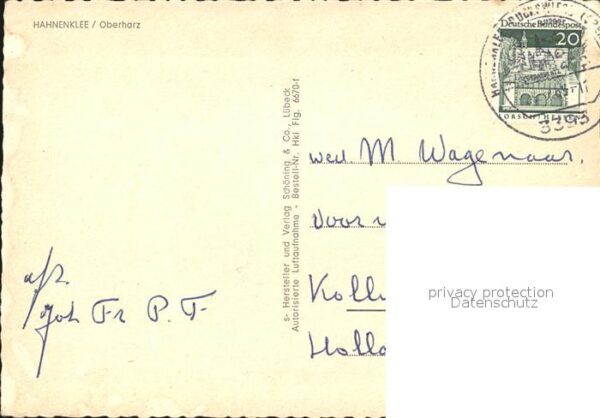 HAHNENKLEE / Oberharz
Deutsche Bundespost
20
LORSCH/HESSEN
3393
s- Hersteller und Verlag Schöning & Co., Lübeck
Autorisierte Luftaufnahme - Bestell-Nr. Hkl Flg. 6670-f
wed. M Wagenaar.
Voor
Koll
Holla
afz.
Fr P. T.
privacy protection
Datenschutz